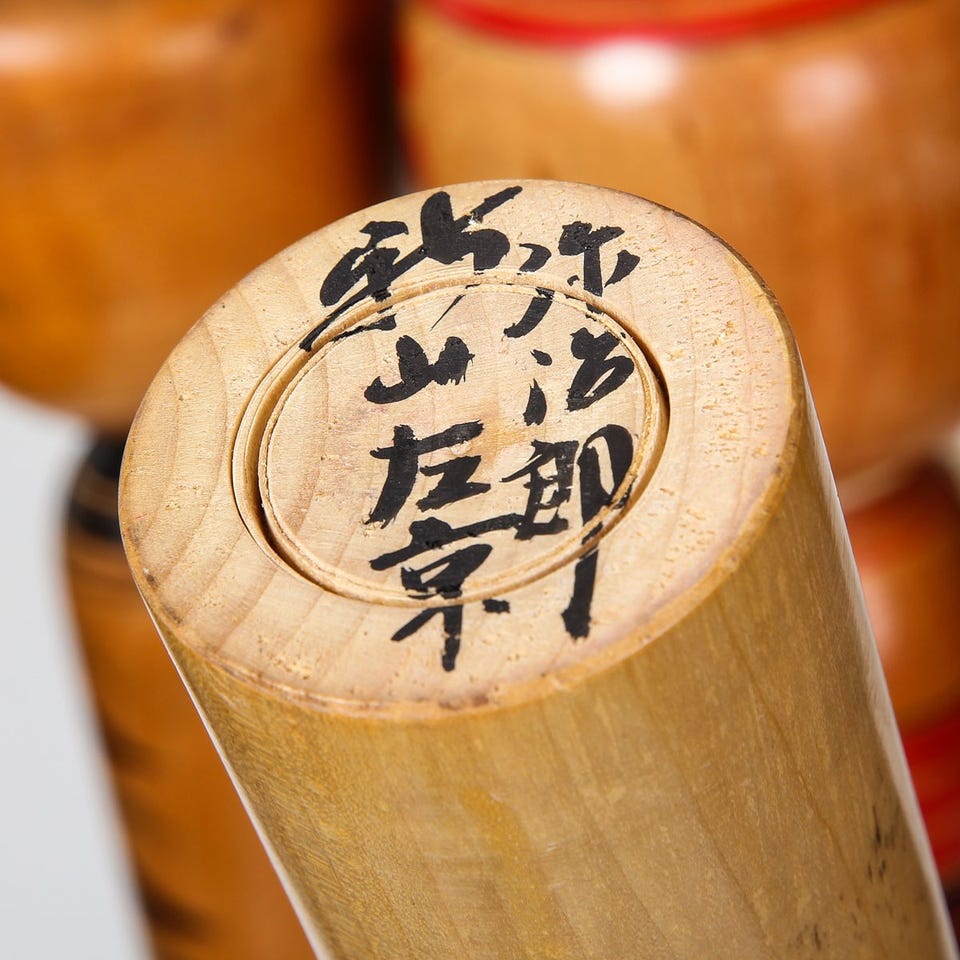 弥治郎
新山左京